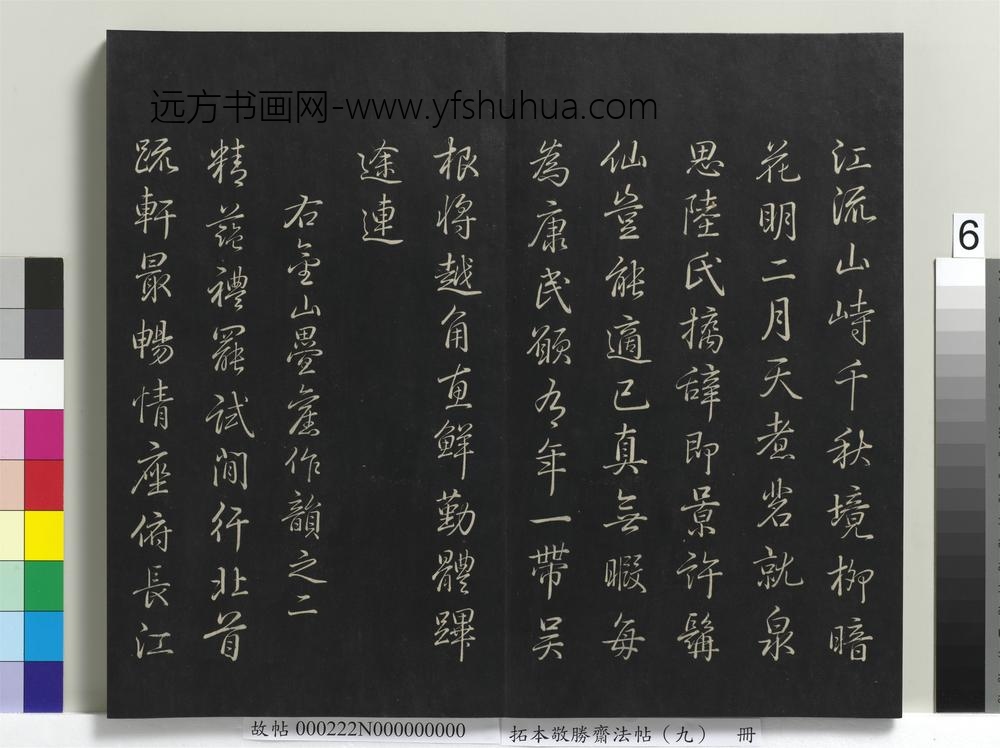 远方书画网-www.yfshuhua.com
江流山峙千秋境柳暗
花明二月天煮茗就泉
思陸氏摛辭即景許髯
仙豈能適己真無暇每
為康民願有年一帶吴
根將越角直鮮勤體蹕
途連
右金山疊舊作韻之二
精藍禮罷試閒行北首
疏軒最暢情座俯長江
6
故帖 000222N000000000
拓本敬勝齋法帖（九） 冊